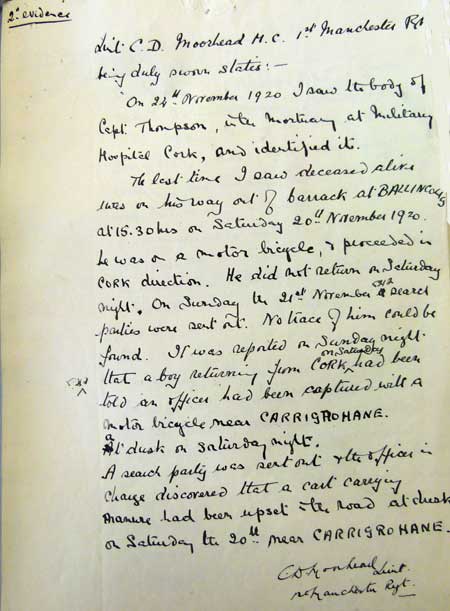 2ⁿ evidence
Lieut. C. D. Moorhead M.C. 1st Manchester Rgt
being duly sworn states:—
"On 24th November 1920 I saw the body of
Capt. Thompson, in the Mortuary at Military
Hospital Cork, and identified it.
The last time I saw deceased alive
was on his way out of barrack at BALLINCOLLIG
at 15.30 hrs on Saturday 20th November 1920.
he was on a motor bicycle, & proceeded in
CORK direction. He did not return on Saturday
night. On Sunday the 21st November search
parties were sent out. No trace of him could be
found. It was reported on Sunday night
that a boy returning from CORK on Saturday had been
told an officer had been captured with a
motor bicycle near CARRIGROHANE.
at dusk on Saturday night.
A search party was sent out & the officer in
charge discovered that a cart carrying
manure had been upset in the road at dusk
on Saturday the 20th near CARRIGROHANE.
C D Moorhead Lieut.
Manchester Regt.